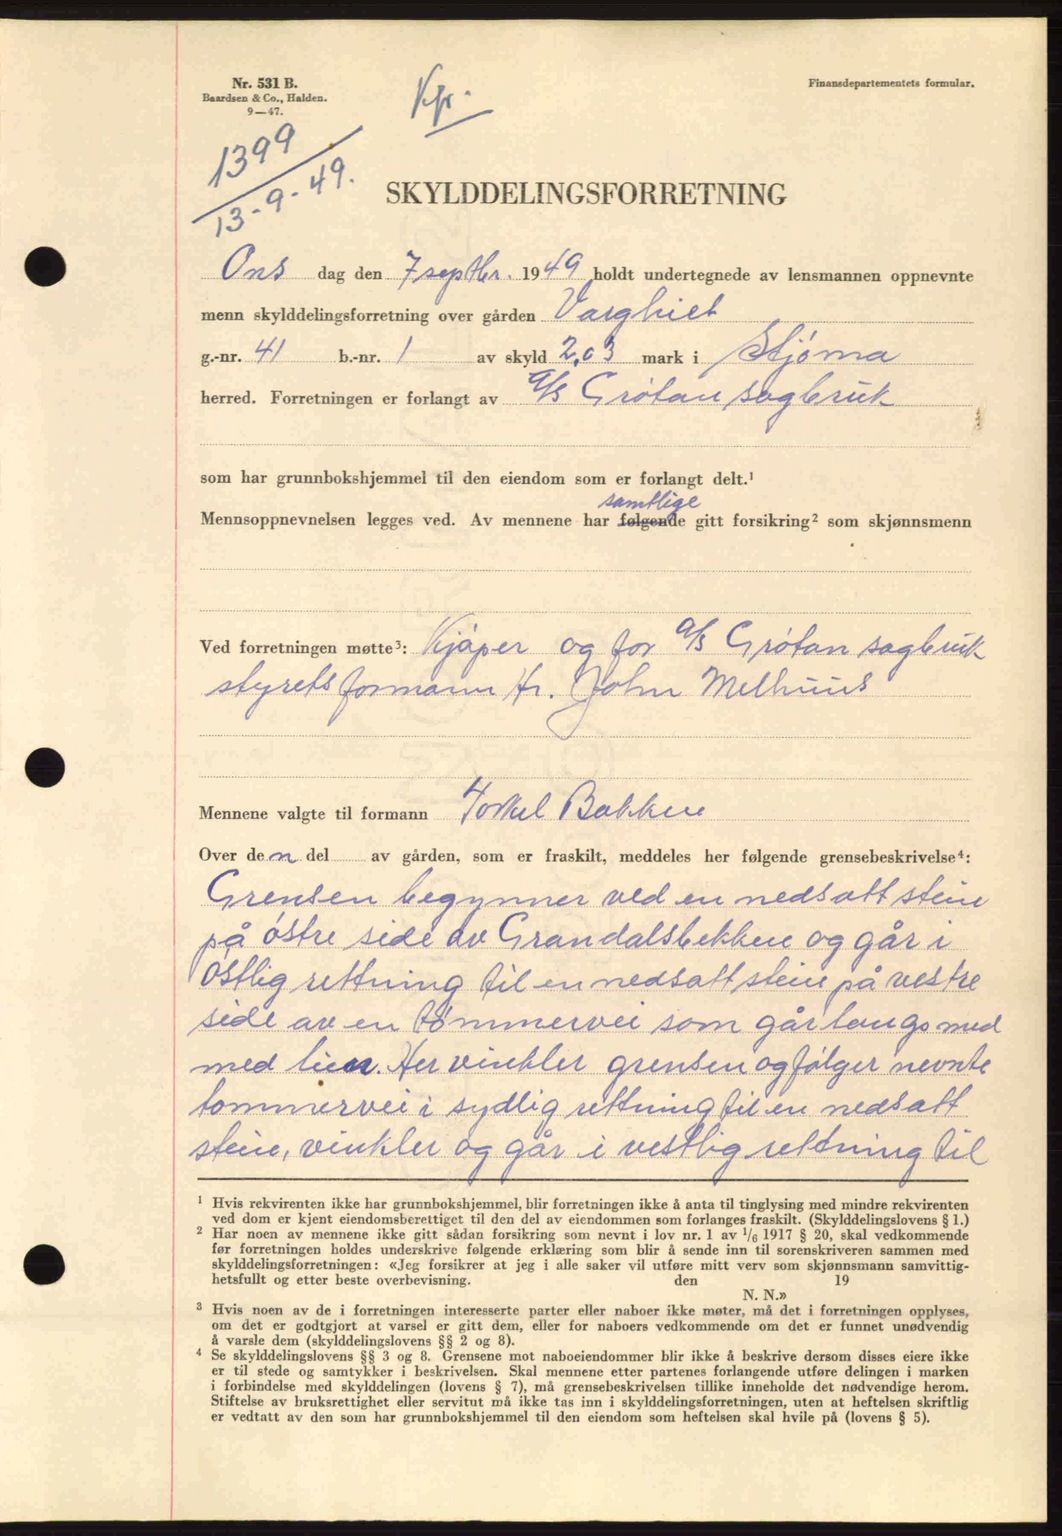 Nr. 531 B.
Baardsen & Co., Halden.
9—47.
Kpr.
Finansdepartementets formular.
1399
13-9-49.
SKYLDDELINGSFORRETNING
Ons dag den 7 septbr. 1949 holdt undertegnede av lensmannen oppnevnte
menn skylddelingsforretning over gården Varghiet
g.-nr. 41 b.-nr. 1 av skyld 2,03 mark i Stjørna
herred. Forretningen er forlangt av a/s Grøtan sagbruk
som har grunnbokshjemmel til den eiendom som er forlangt delt.¹
samtlige
Mennsoppnevnelsen legges ved. Av mennene har følgende gitt forsikring² som skjønnsmenn
Ved forretningen møtte³: Kjøper og for a/s Grøtan sagbruk
styrets formann Hr. John Melhuus
Mennene valgte til formann Torkel Bakken
Over den del av gården, som er fraskilt, meddeles her følgende grensebeskrivelse⁴:
Grensen begynner ved en nedsatt stein
på østre side av Grandalsbekken og går i
østlig rettning til en nedsatt stein på vestre
side av en tømmervei som går langs med
med lien. Her vinkler grensen og følger nevnte
tømmervei i sydlig rettning til en nedsatt
stein, vinkler og går i vestlig rettning til
¹ Hvis rekvirenten ikke har grunnbokshjemmel, blir forretningen ikke å anta til tinglysing med mindre rekvirenten
ved dom er kjent eiendomsberettiget til den del av eiendommen som forlanges fraskilt. (Skylddelingslovens § 1.)
² Har noen av mennene ikke gitt sådan forsikring som nevnt i lov nr. 1 av 1/6 1917 § 20, skal vedkommende
før forretningen holdes underskrive følgende erklæring som blir å sende inn til sorenskriveren sammen med
skylddelingsforretningen: «Jeg forsikrer at jeg i alle saker vil utføre mitt verv som skjønnsmann samvittig-
hetsfullt og etter beste overbevisning. den 19
N. N.»
³ Hvis noen av de i forretningen interesserte parter eller naboer ikke møter, må det i forretningen opplyses,
om det er godtgjort at varsel er gitt dem, eller for naboers vedkommende om det er funnet unødvendig
å varsle dem (skylddelingslovens §§ 2 og 8).
⁴ Se skylddelingslovens §§ 3 og 8. Grensene mot naboeiendommer blir ikke å beskrive dersom disses eiere ikke
er til stede og samtykker i beskrivelsen. Skal mennene etter partenes forlangende utføre delingen i marken
i forbindelse med skylddelingen (lovens § 7), må grensebeskrivelsen tillike inneholde det nødvendige herom.
Stiftelse av bruksrettighet eller servitut må ikke tas inn i skylddelingsforretningen, uten at heftelsen skriftlig
er vedtatt av den som har grunnbokshjemmel til den eiendom som heftelsen skal hvile på (lovens § 5).